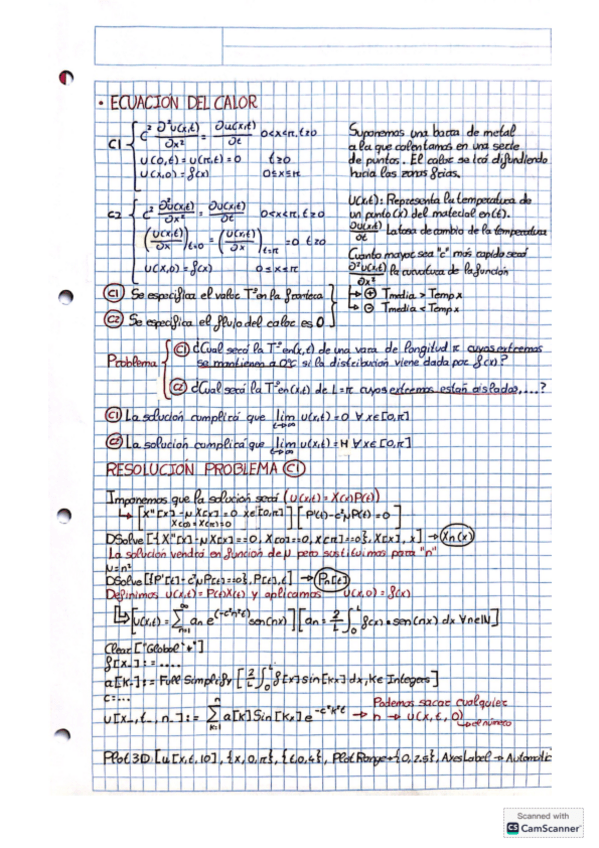 • ECUACION DEL CALOR
C1 { c² ∂²u(x,t)/∂x² = ∂u(x,t)/∂t 0<x<π, t≥0
u(0,t) = u(π,t) = 0 t≥0
u(x,0) = f(x) 0≤x≤π
Suponemos una barra de metal
a la que calentamos en una serie
de puntos. El calor se irá difundiendo
hacia las zonas frias.
C2 { c² ∂²u(x,t)/∂x² = ∂u(x,t)/∂t 0<x<π, t≥0
(u(x,t)/∂x)t=0 = (u(x,t)/∂x)t=π = 0 t≥0
u(x,0) = f(x) 0≤x≤π
u(x,t): Representa la temperatura de
un punto (x) del material en (t).
∂u(x,t)/∂t La tasa de cambio de la temperatura
Cuanto mayor sea "c" más rapido será
∂²u(x,t)/∂x² la curvatura de la función
↳ ⊕ Tmedia > Temp x
↳ ⊖ Tmedia < Temp x
C1 Se especifica el valor Tª en la frontera
C2 Se especifica el flujo del calor es 0
Problema { C1 ¿Cual será la Tª en (x,t) de una vara de longitud π cuyos extremos
se mantienen a 0ºC si la distribución viene dada por f(x)?
C2 ¿Cual será la Tª en (x,t) de L=π cuyos extremos están aislados,....?
C1 La solución cumplirá que lim t→∞ u(x,t) = 0 ∀ x∈[0,π]
C2 La solución cumplirá que lim t→∞ u(x,t) = M ∀ x∈[0,π]
RESOLUCIÓN PROBLEMA C1
Imponemos que la solución será (u(x,t) = X(x)P(t))
↳ [X''[x] - μ X[x] = 0 x∈[0,π] X(0) = X(π) = 0] [P'(t) - c²μP(t) = 0]
DSolve[{X''[x] - μX[x] == 0, X[0] == 0, X[π] == 0}, X[x], x] → Xn(x)
La solución vendrá en función de μ pero sustituimos para "n"
μ = n²
DSolve[{P'[t] - c²μP[t] == 0}, P[t], t] → Pn[t]
Definimos u(x,t) = P(t)X(x) y aplicamos u(x,0) = f(x)
↳ [u(x,t) = ∑ n=1 ∞ an e^(-c²n²t) sen(nx)] [an = 2/L ∫₀ᴸ f(x) · sen(nx) dx ∀n∈ℕ]
Clear["Global`*"]
f[x_] := ....
a[k_] := FullSimplify[2/L ∫₀ᴸ f[x] sin[kx] dx, k∈Integers]
c = ...
u[x_, t_, n_] := ∑ k=1 n a[k] Sin[kx] e^-c²k²t → Podemos sacar cualquier
n → u(x,t,0) ↳ el número
Plot3D[u[x,t,10], {x,0,π}, {t,0,4}, PlotRange→{0,2.5}, AxesLabel → Automatic
Scanned with
CS CamScanner